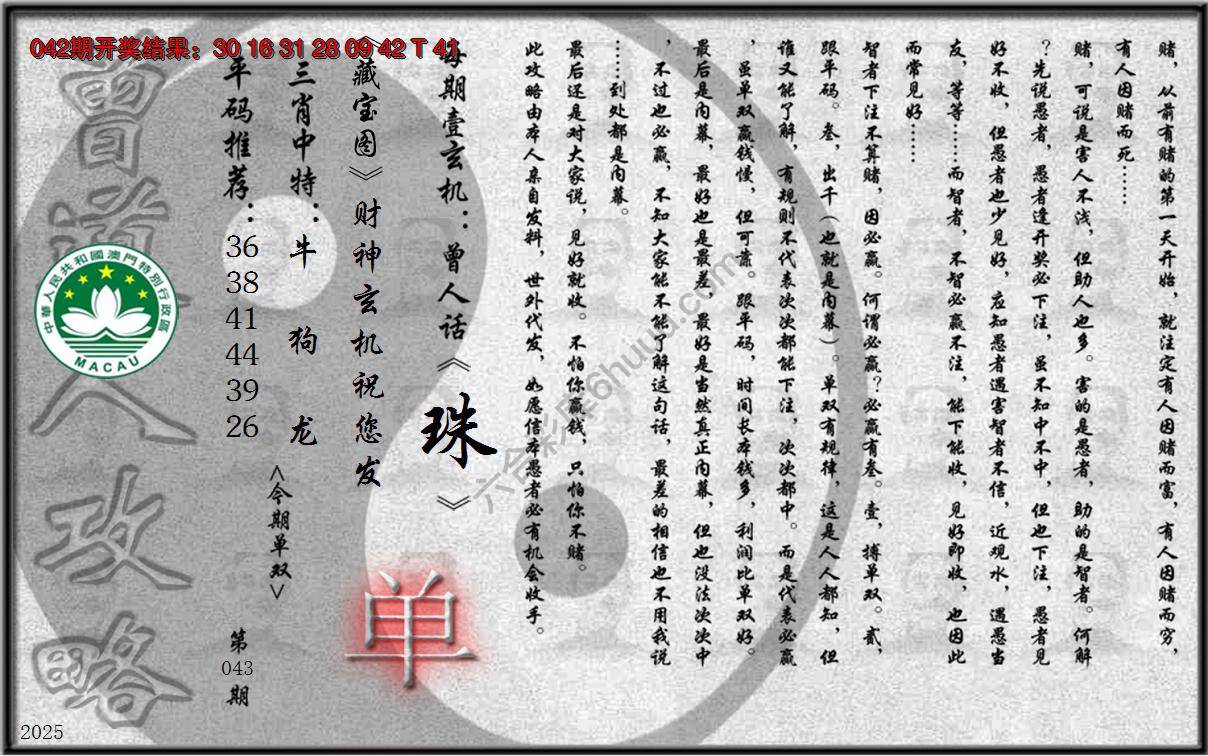 042期开奖结果：30 16 31 28 09 42 T 41
赌，从前有赌的第一天开始，就注定有人因赌而富，有人因赌而穷，
有人因赌而死……
赌，可说是害人不浅，但助人也多。害的是愚者，助的是智者。何解
？先说愚者，愚者逢开奖必下注，虽不知中不中，但也下注，愚者见
好不收，但愚者也少见好，应知愚者遇害智者不信，近观水，遇愚当
友，等等……而智者，不智必赢不注，能下能收，见好即收，也因此
而常见好……
智者下注不算赌，因必赢。何谓必赢？必赢有叁。壹，搏单双。贰，
跟平码。叁，出千（也就是内幕）。单双有规律，这是人人都知，但
谁又能了解，有规则不代表次次都能下注，次次都中。而是代表必赢
，虽单双赢钱慢，但可靠。跟平码，时间长本钱多，利润比单双好。
最后是内幕，最好也是最差，最好是当然真正内幕，但也没法次次中
，不过也必赢，不知大家能不能了解这句话，最差的相信也不用我说
……到处都是内幕。
最后还是对大家说，见好就收。不怕你赢钱，只怕你不赌。
此攻略由本人亲自发料，世外代发，如愿信本愚者必有机会收手。
每期壹玄机：曾人话《珠》
《藏宝图》财神玄机祝您发
单
三肖中特：牛 狗 龙
<今期单双>
平码推荐：
36
38
41
44
39
26
第
043
期
曾道人攻略
中華人民共和國澳門特別行政區
MACAU
六合彩库6huuu.com
2025